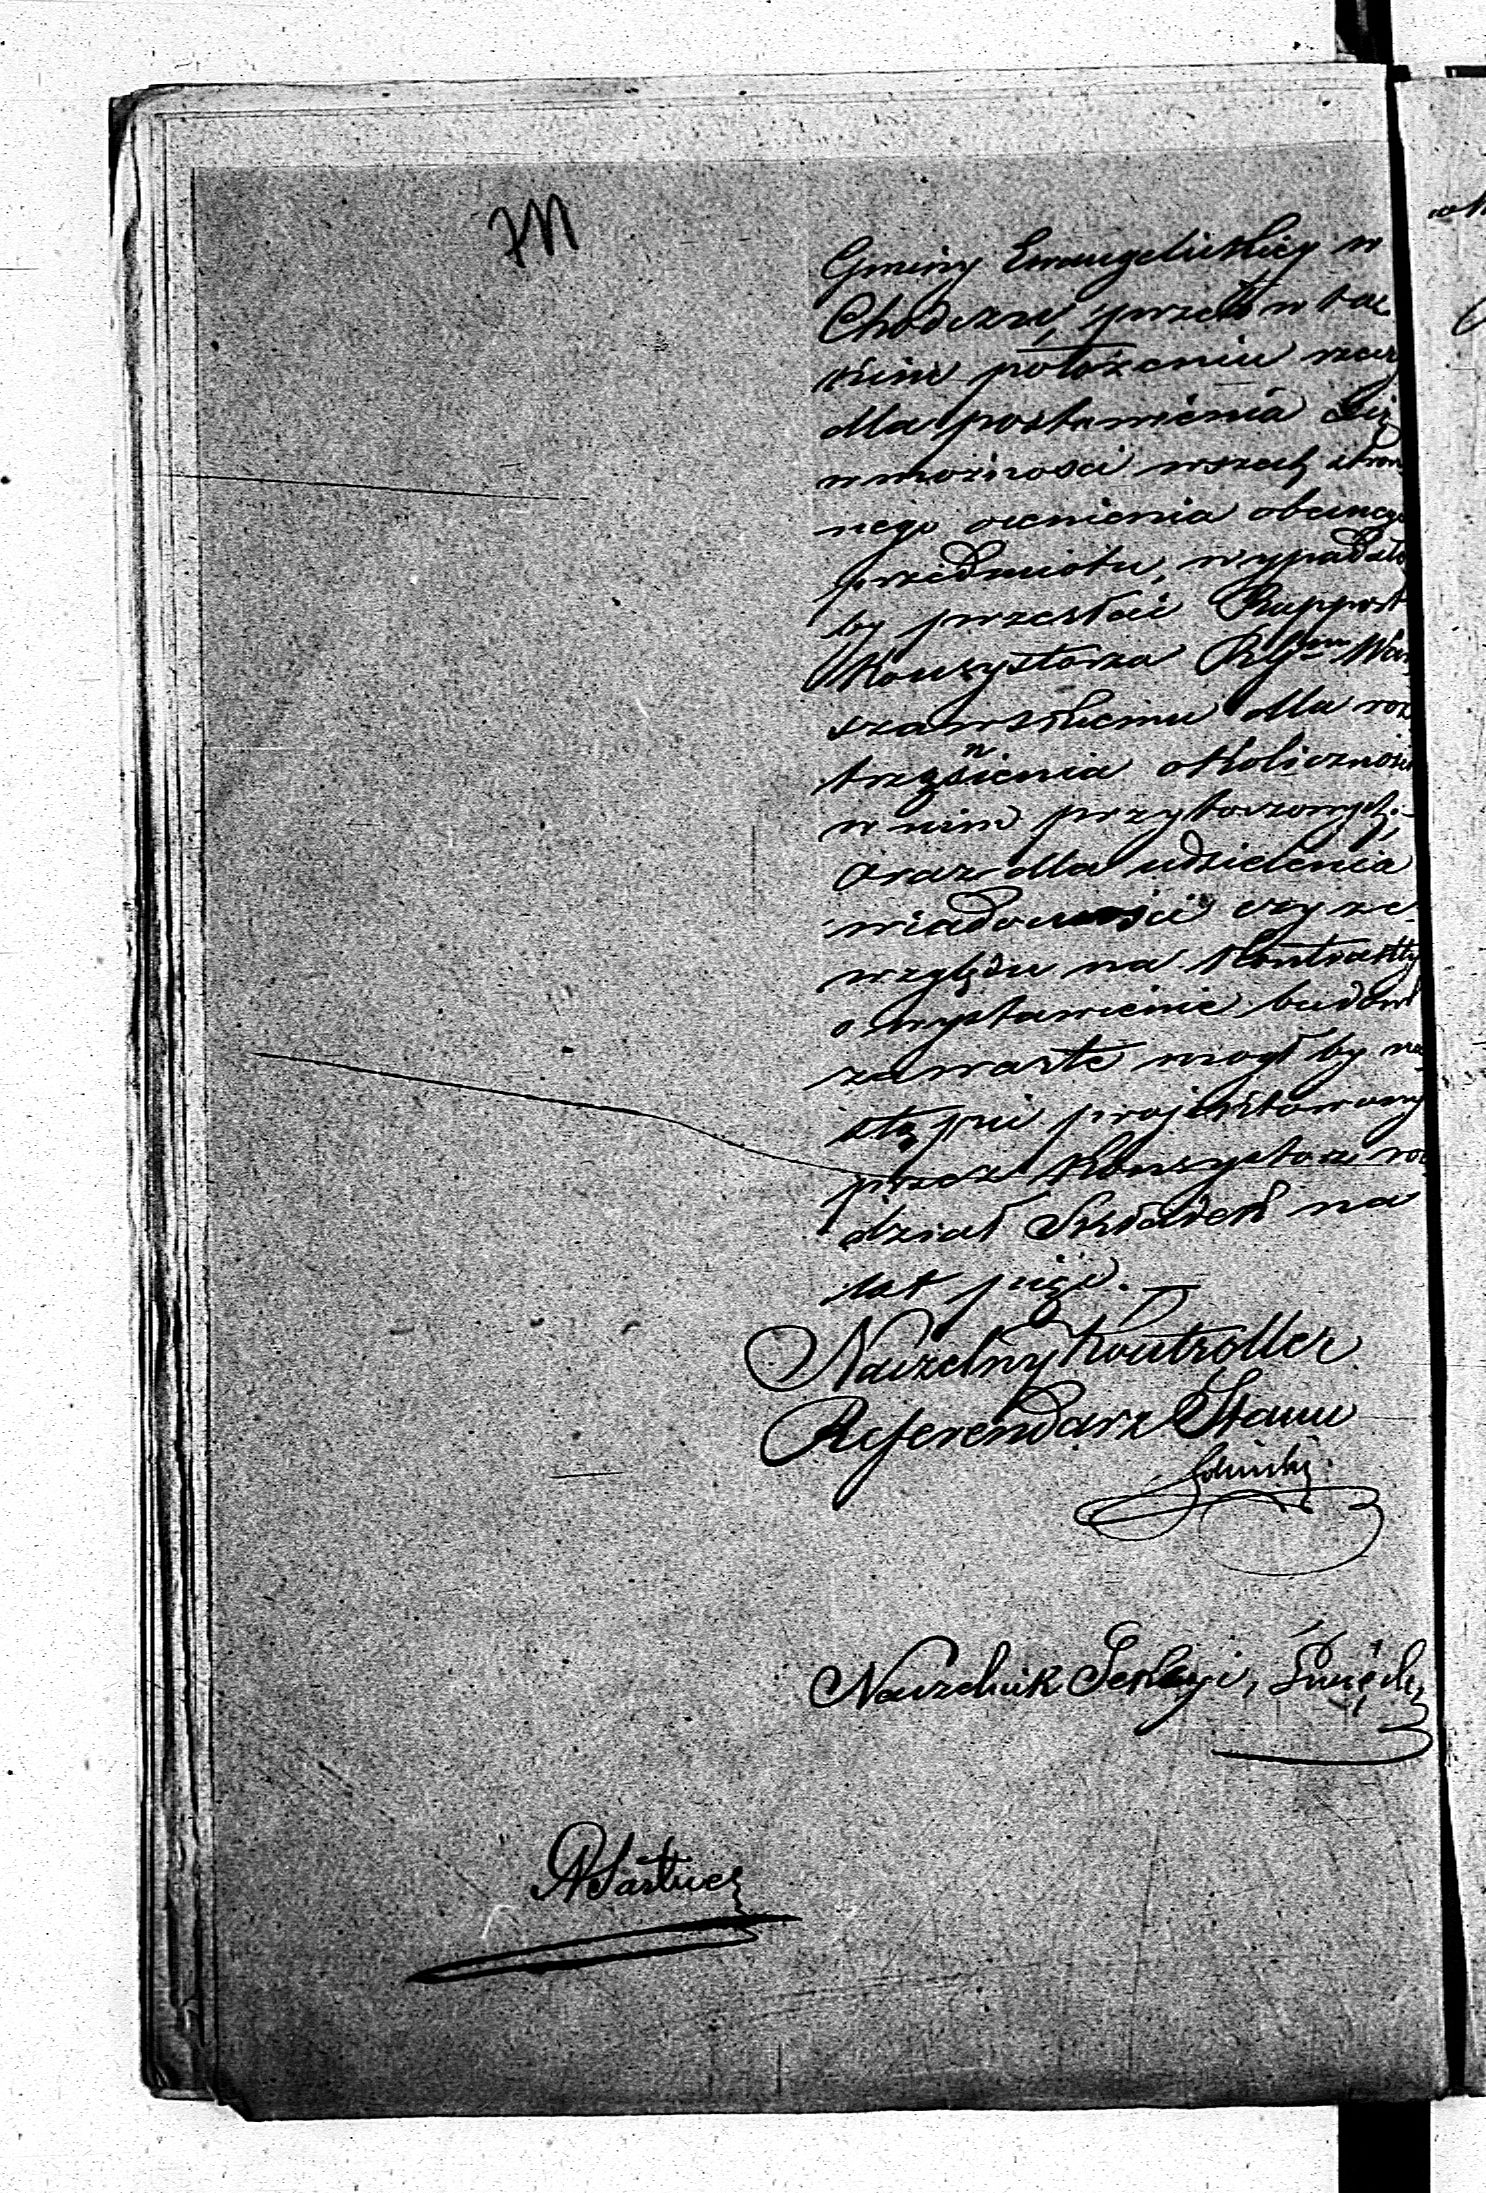 Gminy Ewangelickiej w
Chodczu, przeto w ta¬
kim położeniu rzeczy
dla postawienia Się
w możności wszech stron
nego ocenienia obecnego
przedmiotu, wypadało
by przesłać Rapport
Konsystorza Rzymo War
szawskiemu dla roz
trząśnienia okoliczności
w nim przytoczonych;
oraz dla udzielenia
wiadomości czy ze
względu na Kontrakty
o wystawienie budowl
zawarte mógł by na
stąpić projektowany
przez Konsystorz roz
dział Składek na
lat pięć. —
Naczelny Kontroller
Referendarz Stanu
Naczelnik Sekcyi,